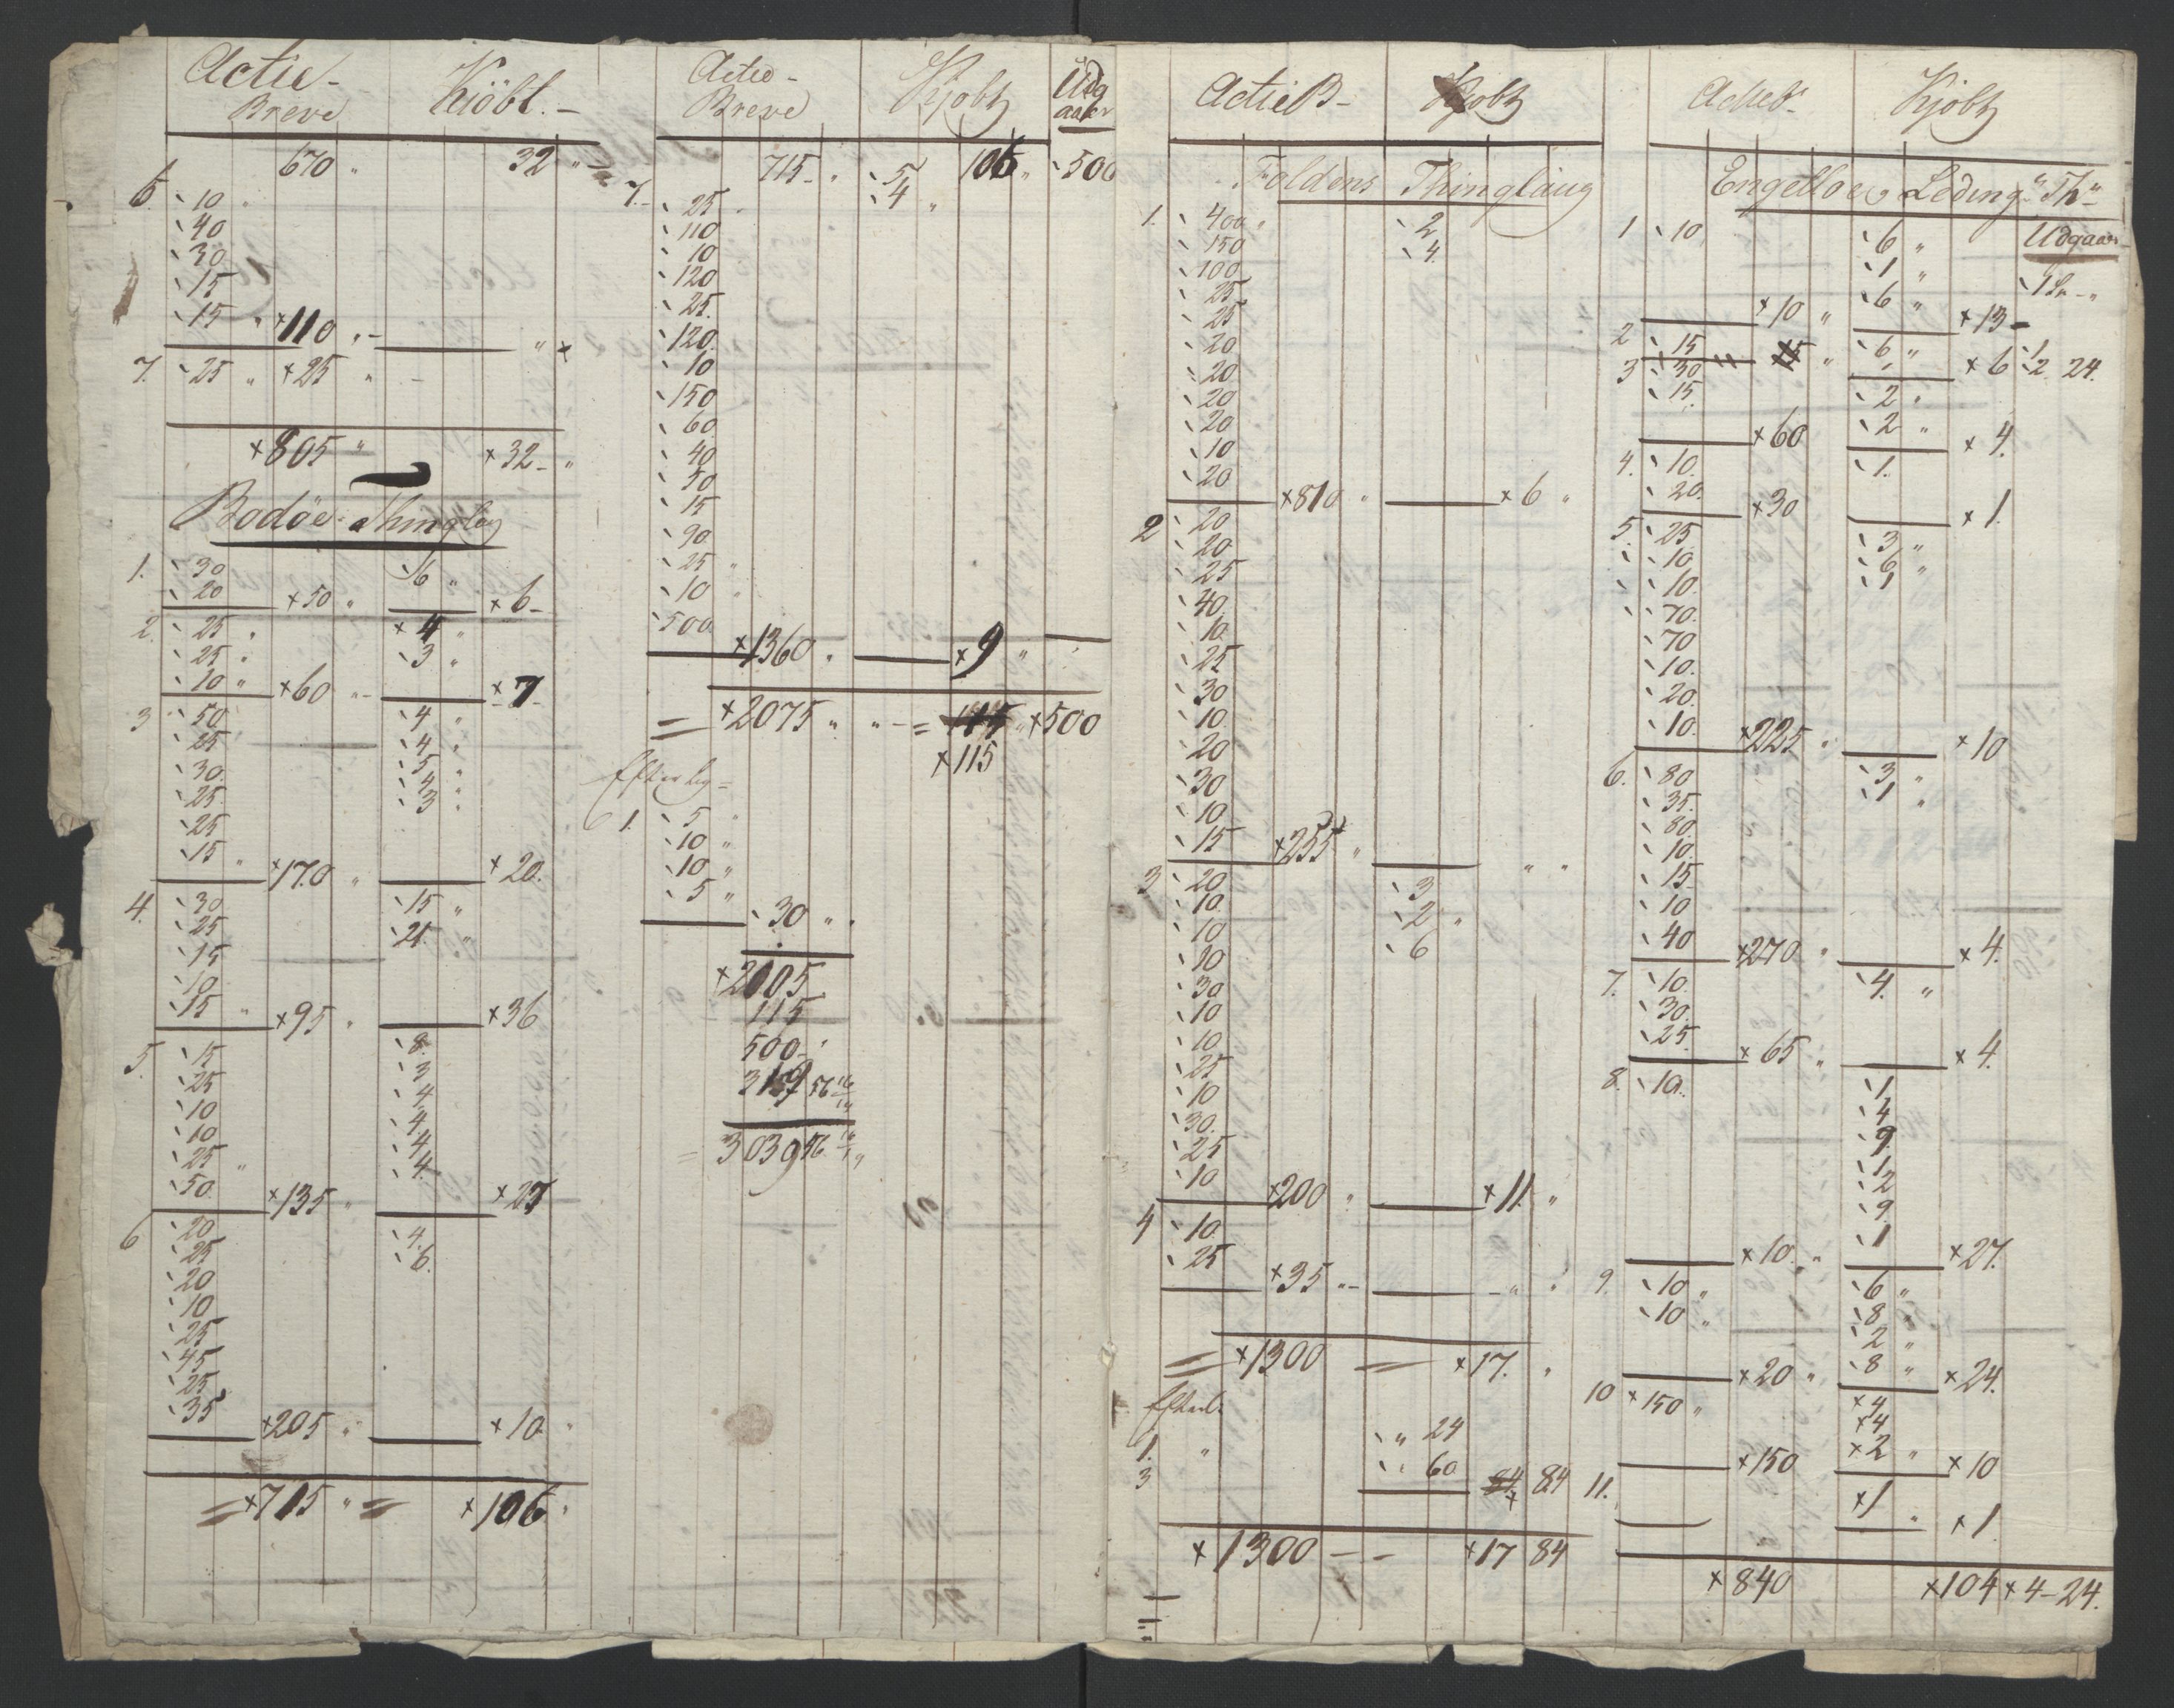 Actie- Kjöbt.-
Breve
670 " 32 "
6. 10 "
40
30
15
15 " ×110 "- " ×
7. 25 " ×25 " -
×805 " ×32- "
Bodöe Thinglag
1. 30 6 "
20 ×50 " ×6-
2. 25 " ×4 "
25 " 3 "
10 " ×60 "- ×7-
3 50 4 "
25 4 "
30. 5 "
25. 4 "
25 3 "
15 " ×170 " ×20.
4. 30 15 "
25 21 "
15
10
15 " ×95 " ×36
5. 15 8.
25 3
10 4.
10 4.
25 " 4
50 4.
×135 " ×27
6 20 4.
25 6.
20
10
25
45
25
35 ×205 " ×10 "
= ×715 " = ×106 "
Actie- Kjöbt Udg
Breve aaer
715- " 5 106 " 500
7.- 25 " 4 "
110
10
120
25.
120.
10
150
60
40
50
15
90
25 "
10 "
500
×1360 " ×9 "
= ×2075 " "- = " ×500
×115
Efterlig-
1. 5 "
10 "
10 "
5 "
30 " "
×2105
115
500 "
319 56
= 3039 56
ActieB- Kjöbt
Foldens Thinglaug
1. 400 " 2
150 4.
100
25
25
20
20
20
20
10
20
×810 " ×6 "
2 20
20
25
40.
10
25
30
10
20
30
10
15 ×255 " " "
3 20 3
10. 2 "
10 6
10
30
10
10
25
10
30.
25
10
×200 " ×11 "
4 10
25
×35 "- - " "
= ×1300 = ×17. "
Efterl.
1. " " 24
3 " 60 84 84
×1300 - - ×17 84
Actiebr- Kjöbt
Engelöe Leding" Th"
1 10 6 " Udgaar-
1 "
×10 " 6 " ×13-
2 15 " 6 " ×6 2 24.
3 30 2 "
15. 2 "
×60 ×4.
4. 10. 1.
20. ×30 ×1.
5. 25 3 "
10. 6 "
10. 1
70.
70
10.
20.
10. ×225 " ×10
6. 80 3 "
35. 1 "
80.
10.
15
10
40 ×270 " ×4.
7. 10. 4. "
30.
25. ×65 " ×4.
8. 10. 1
4
9
1
2
9
1
×10. " ×27.
9. 10 " 6 "
10 " 8 "
2 "
×20 " 8 " ×24.
10 ×150 " ×4
×4
×2 "
×150 ×10
11. ×1 " ×1
×840 ×104 ×4-24.